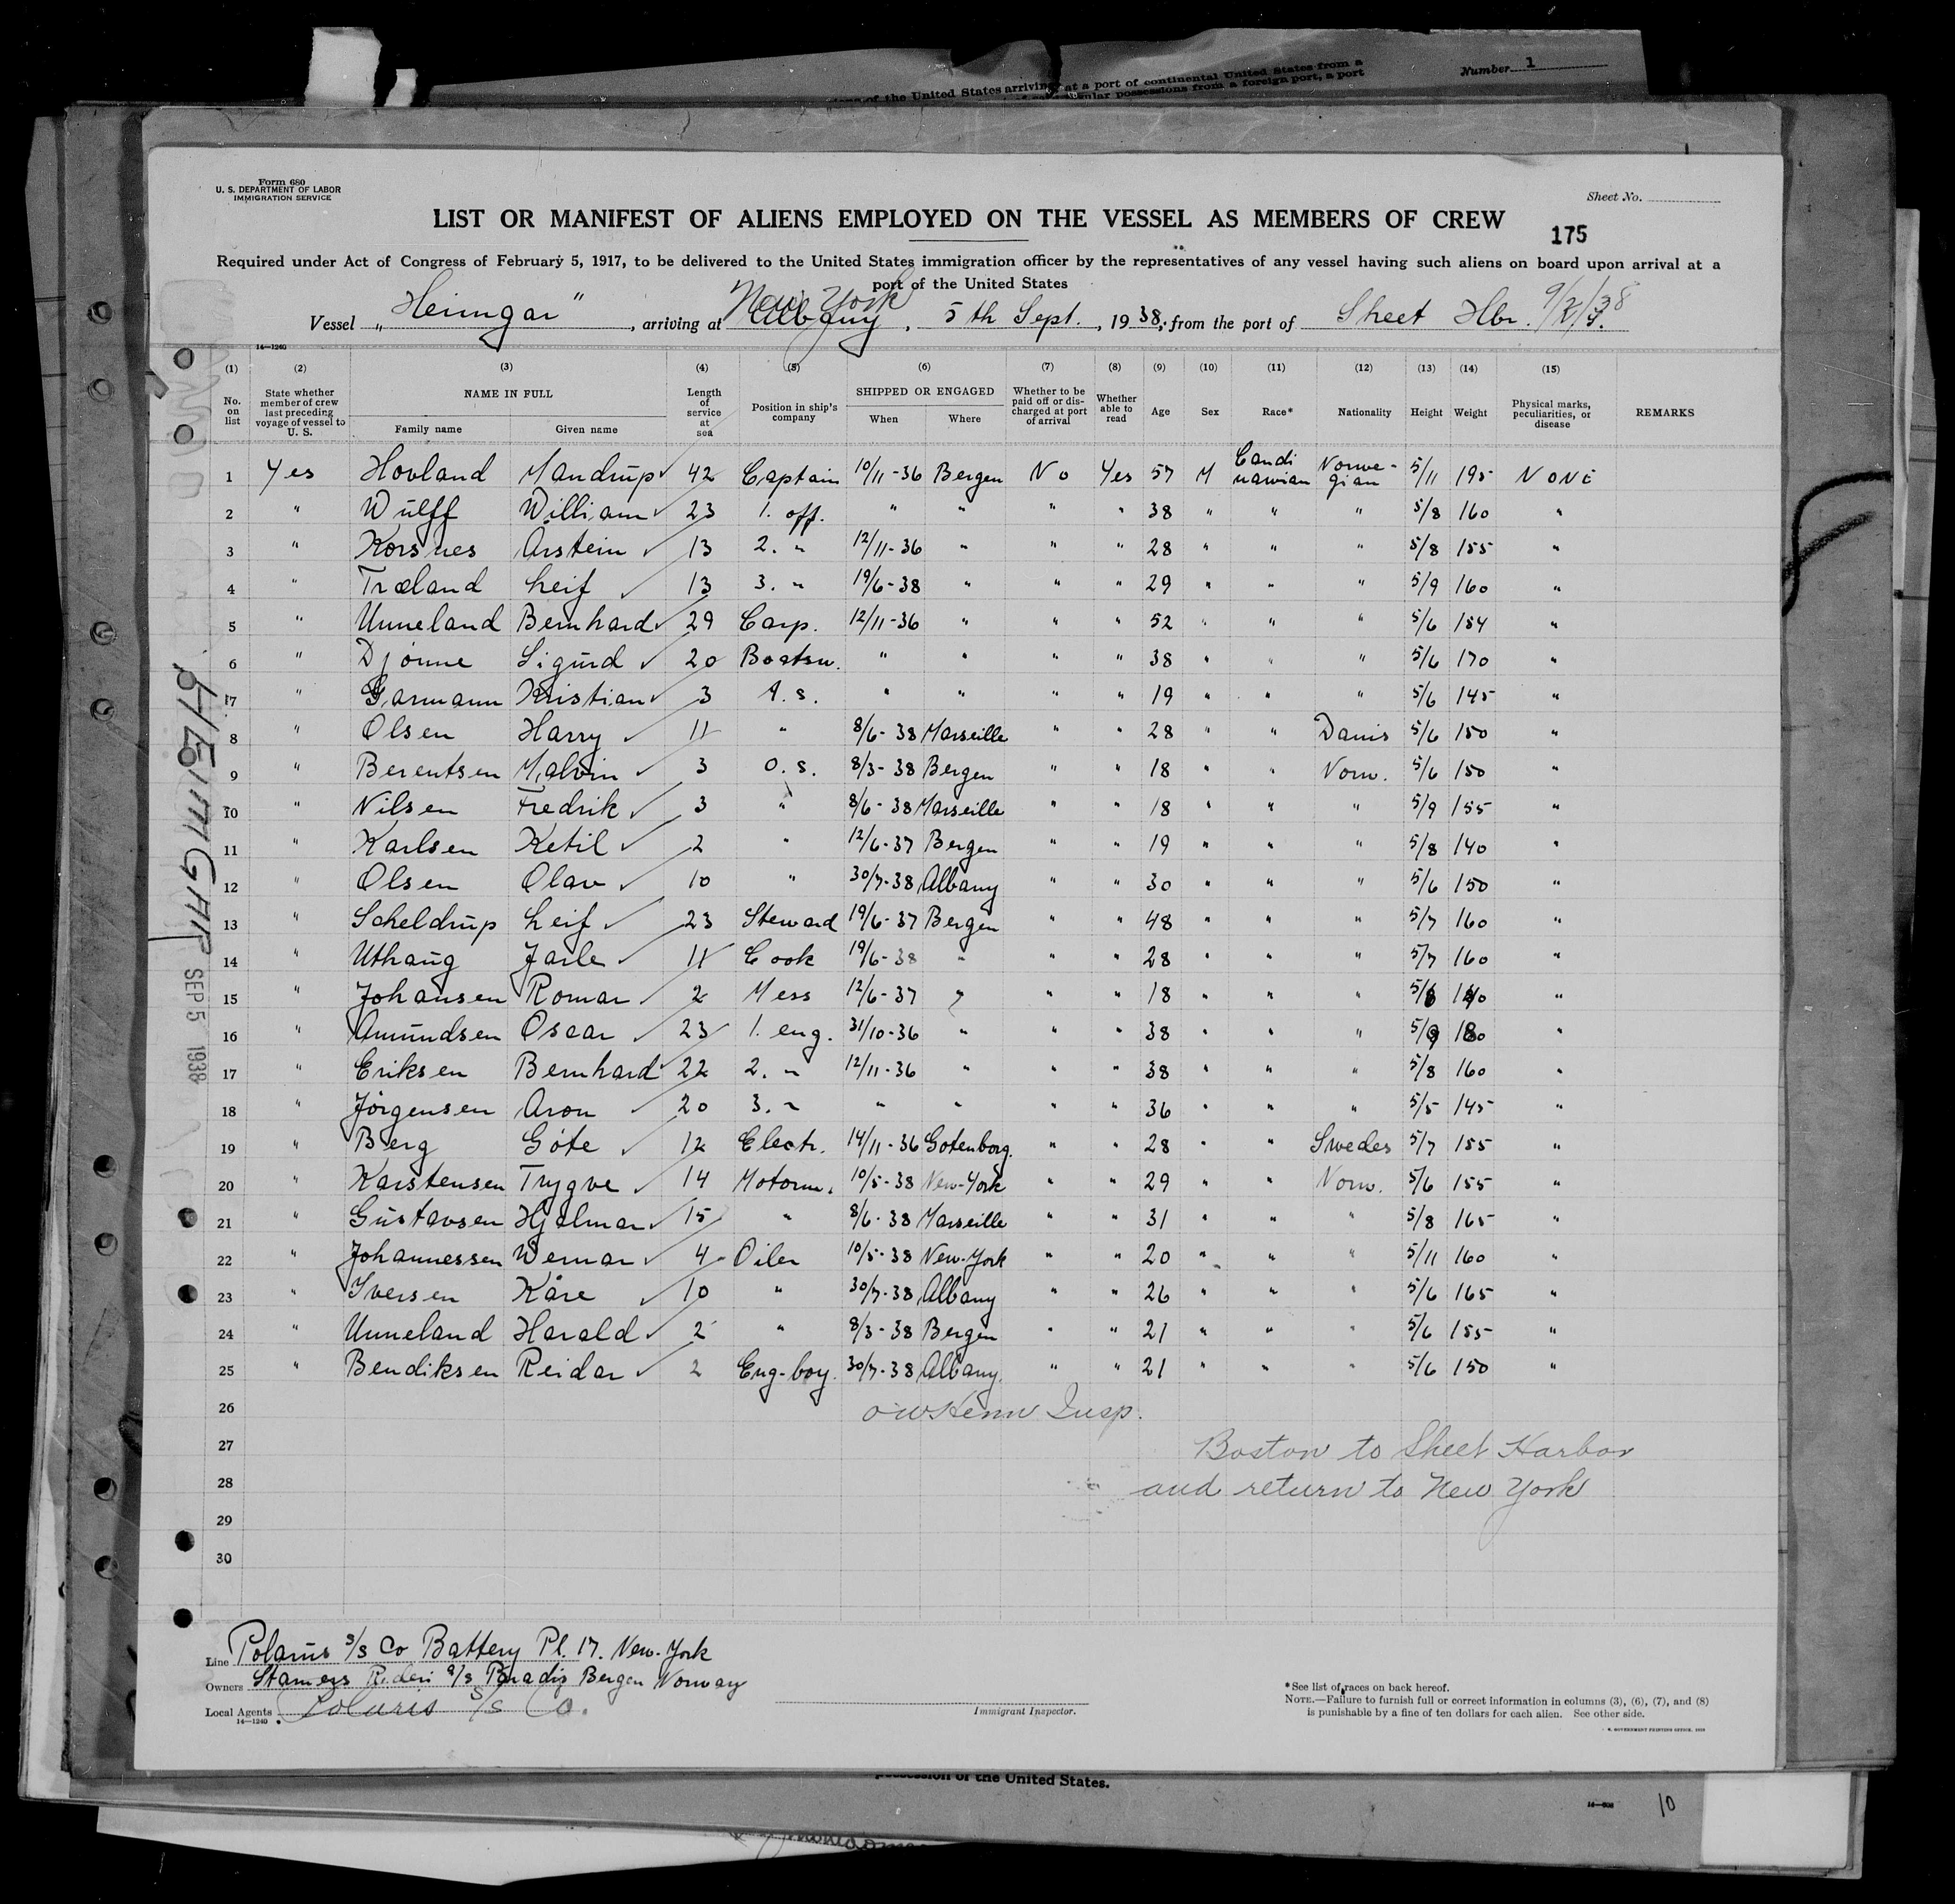 Number 1
of the United States arriving at a port of continental United States from a
possessions from a foreign port, a port
Form 680
U. S. DEPARTMENT OF LABOR
IMMIGRATION SERVICE
Sheet No.
LIST OR MANIFEST OF ALIENS EMPLOYED ON THE VESSEL AS MEMBERS OF CREW
175
Required under Act of Congress of February 5, 1917, to be delivered to the United States immigration officer by the representatives of any vessel having such aliens on board upon arrival at a
port of the United States
New York
Vessel „Heimgar", arriving at Albany, 5th Sept., 1938, from the port of Sheet Hbr. 9/2/38
14—1240
(1) (2) (3) (4) (5) (6) (7) (8) (9) (10) (11) (12) (13) (14) (15)
No. on list State whether member of crew last preceding voyage of vessel to U. S. NAME IN FULL Family name Given name Length of service at sea Position in ship's company SHIPPED OR ENGAGED When Where Whether to be paid off or discharged at port of arrival Whether able to read Age Sex Race* Nationality Height Weight Physical marks, peculiarities, or disease REMARKS
1 Yes Hovland Mandrup 42 Captain 10/11-36 Bergen No Yes 57 M Candinawian Norwegian 5/11 195 None
2 " Wulff William 23 1. off. " " " " 38 " " " 5/8 160 "
3 " Korsnes Arstein 13 2. " 12/11-36 " " " 28 " " " 5/8 155 "
4 " Træland Leif 13 3. " 19/6-38 " " " 29 " " " 5/9 160 "
5 " Unneland Bernhard 29 Carp. 12/11-36 " " " 52 " " " 5/6 154 "
6 " Djönne Sigurd 20 Boatsw. " " " " 38 " " " 5/6 170 "
7 " Garmann Kristian 3 A. s. " " " " 19 " " " 5/6 145 "
8 " Olsen Harry 11 " 8/6-38 Marseille " " 28 " " Danis 5/6 150 "
9 " Berentsen Malvin 3 O. s. 8/3-38 Bergen " " 18 " " Norw. 5/6 150 "
10 " Nilsen Fredrik 3 " 8/6-38 Marseille " " 18 " " " 5/9 155 "
11 " Karlsen Ketil 2 " 12/6-37 Bergen " " 19 " " " 5/8 140 "
12 " Olsen Olav 10 " 30/7-38 Albany " " 30 " " " 5/6 150 "
13 " Scheldrup Leif 23 Steward 19/6-37 Bergen " " 48 " " " 5/7 160 "
14 " Uthaug Jarle 11 Cook 19/6-38 " " " 28 " " " 5/7 160 "
15 " Johansen Romar 2 Mess 12/6-37 " " " 18 " " " 5/8 140 "
16 " Amundsen Oscar 23 1. eng. 31/10-36 " " " 38 " " " 5/9 180 "
17 " Eriksen Bernhard 22 2. " 12/11-36 " " " 38 " " " 5/8 160 "
18 " Jörgensen Aron 20 3. " " " " " 36 " " " 5/5 145 "
19 " Berg Göte 12 Electr. 14/11-36 Gotenborg. " " 28 " " Swedes 5/7 155 "
20 " Karstensen Trygve 14 Motorm. 10/5-38 New-York " " 29 " " Norw. 5/6 155 "
21 " Gustavsen Hjalmar 15 " 8/6-38 Marseille " " 31 " " " 5/8 165 "
22 " Johannessen Wernar 4 Oiler 10/5-38 New-York " " 20 " " " 5/11 160 "
23 " Iversen Kåre 10 " 30/7-38 Albany " " 26 " " " 5/6 165 "
24 " Unneland Harald 2 " 8/3-38 Bergen " " 21 " " " 5/6 155 "
25 " Bendiksen Reidar 2 Eng-boy. 30/7-38 Albany. " " 21 " " " 5/6 150 "
26 Insp.
27 Boston to Sheet Harbor
28 and return to New York
29
30
HEIMGAR
SEP 5 1938
Line Polaris S/S Co Battery Pl. 17. New-York
Owners Stamers Rederi a/s Paradis Bergen Norway
Local Agents Polaris S/S Co.
14—1240
Immigrant Inspector.
*See list of races on back hereof.
NOTE.—Failure to furnish full or correct information in columns (3), (6), (7), and (8)
is punishable by a fine of ten dollars for each alien. See other side.
possession of the United States.
10